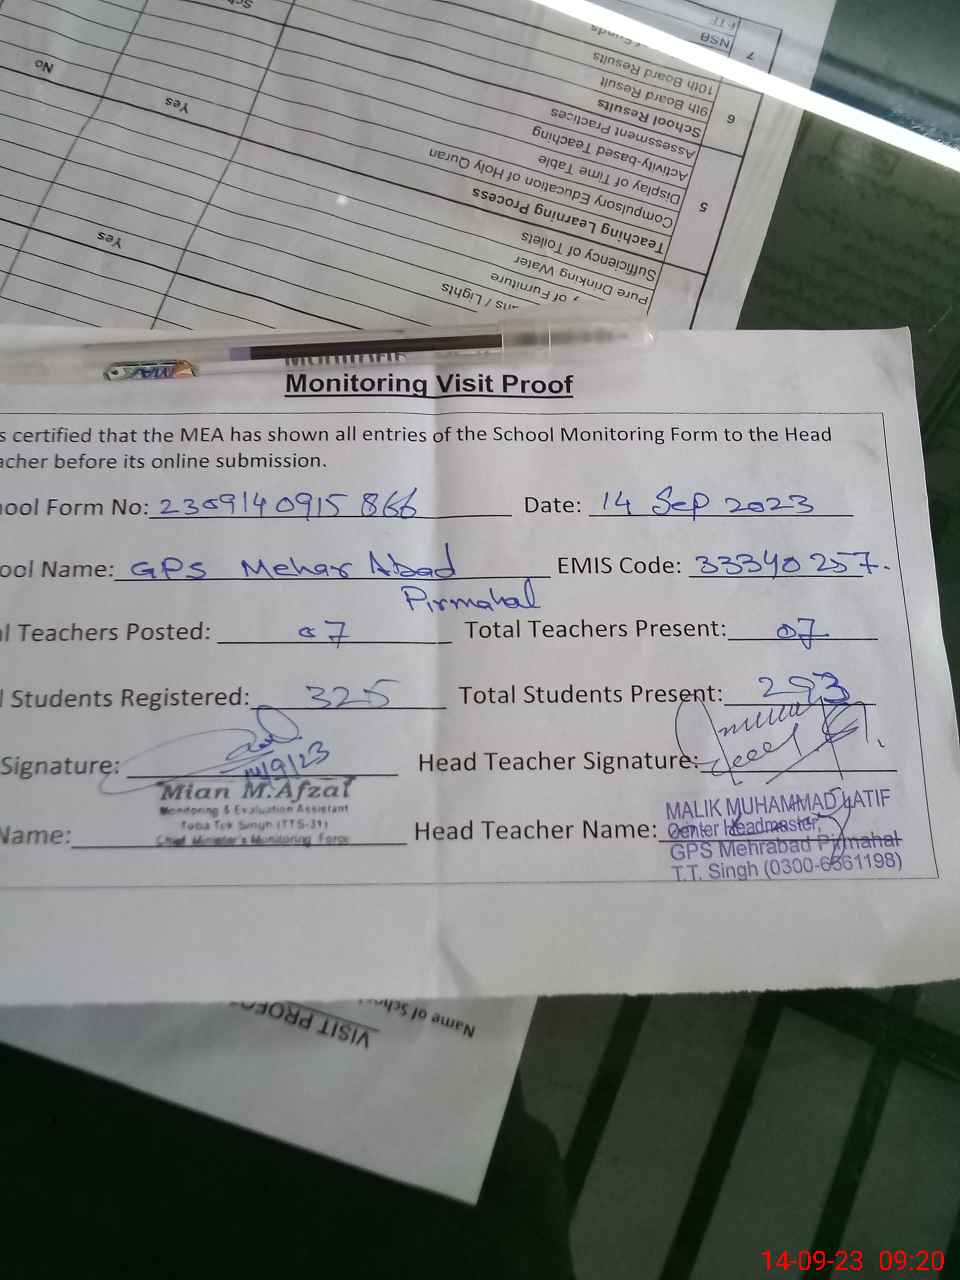 7
NSB
6
10th Board Results
9th Board Result
School Results
Assessment Practices
5
Activity-based Teaching
Display of Time Table
Compulsory Education of Holy Quran
Teaching Learning Process
Sufficiency of Toilets
Pure Drinking Water
of Furniture
/ Lights
No
Yes
Yes
Monitoring Visit Proof
certified that the MEA has shown all entries of the School Monitoring Form to the Head
before its online submission.
Form No: 2309140915866 Date: 14 Sep 2023
Name: GPS Mehar Abad EMIS Code: 33340257.
Pirmahal
Teachers Posted: 07 Total Teachers Present: 07
Students Registered: 325 Total Students Present: 293
Signature: 14/9/23 Head Teacher Signature:
Mian M.Afzal
Monitoring & Evaluation Assistant
Toba Tek Singh (TTS-31)
Chief Minister's Monitoring Force
Name: Head Teacher Name:
MALIK MUHAMMAD LATIF
Center Headmaster,
GPS Mehrabad Pirmahal
T.T. Singh (0300-6561198)
VISIT PROFO
Name of School
14-09-23 09:20